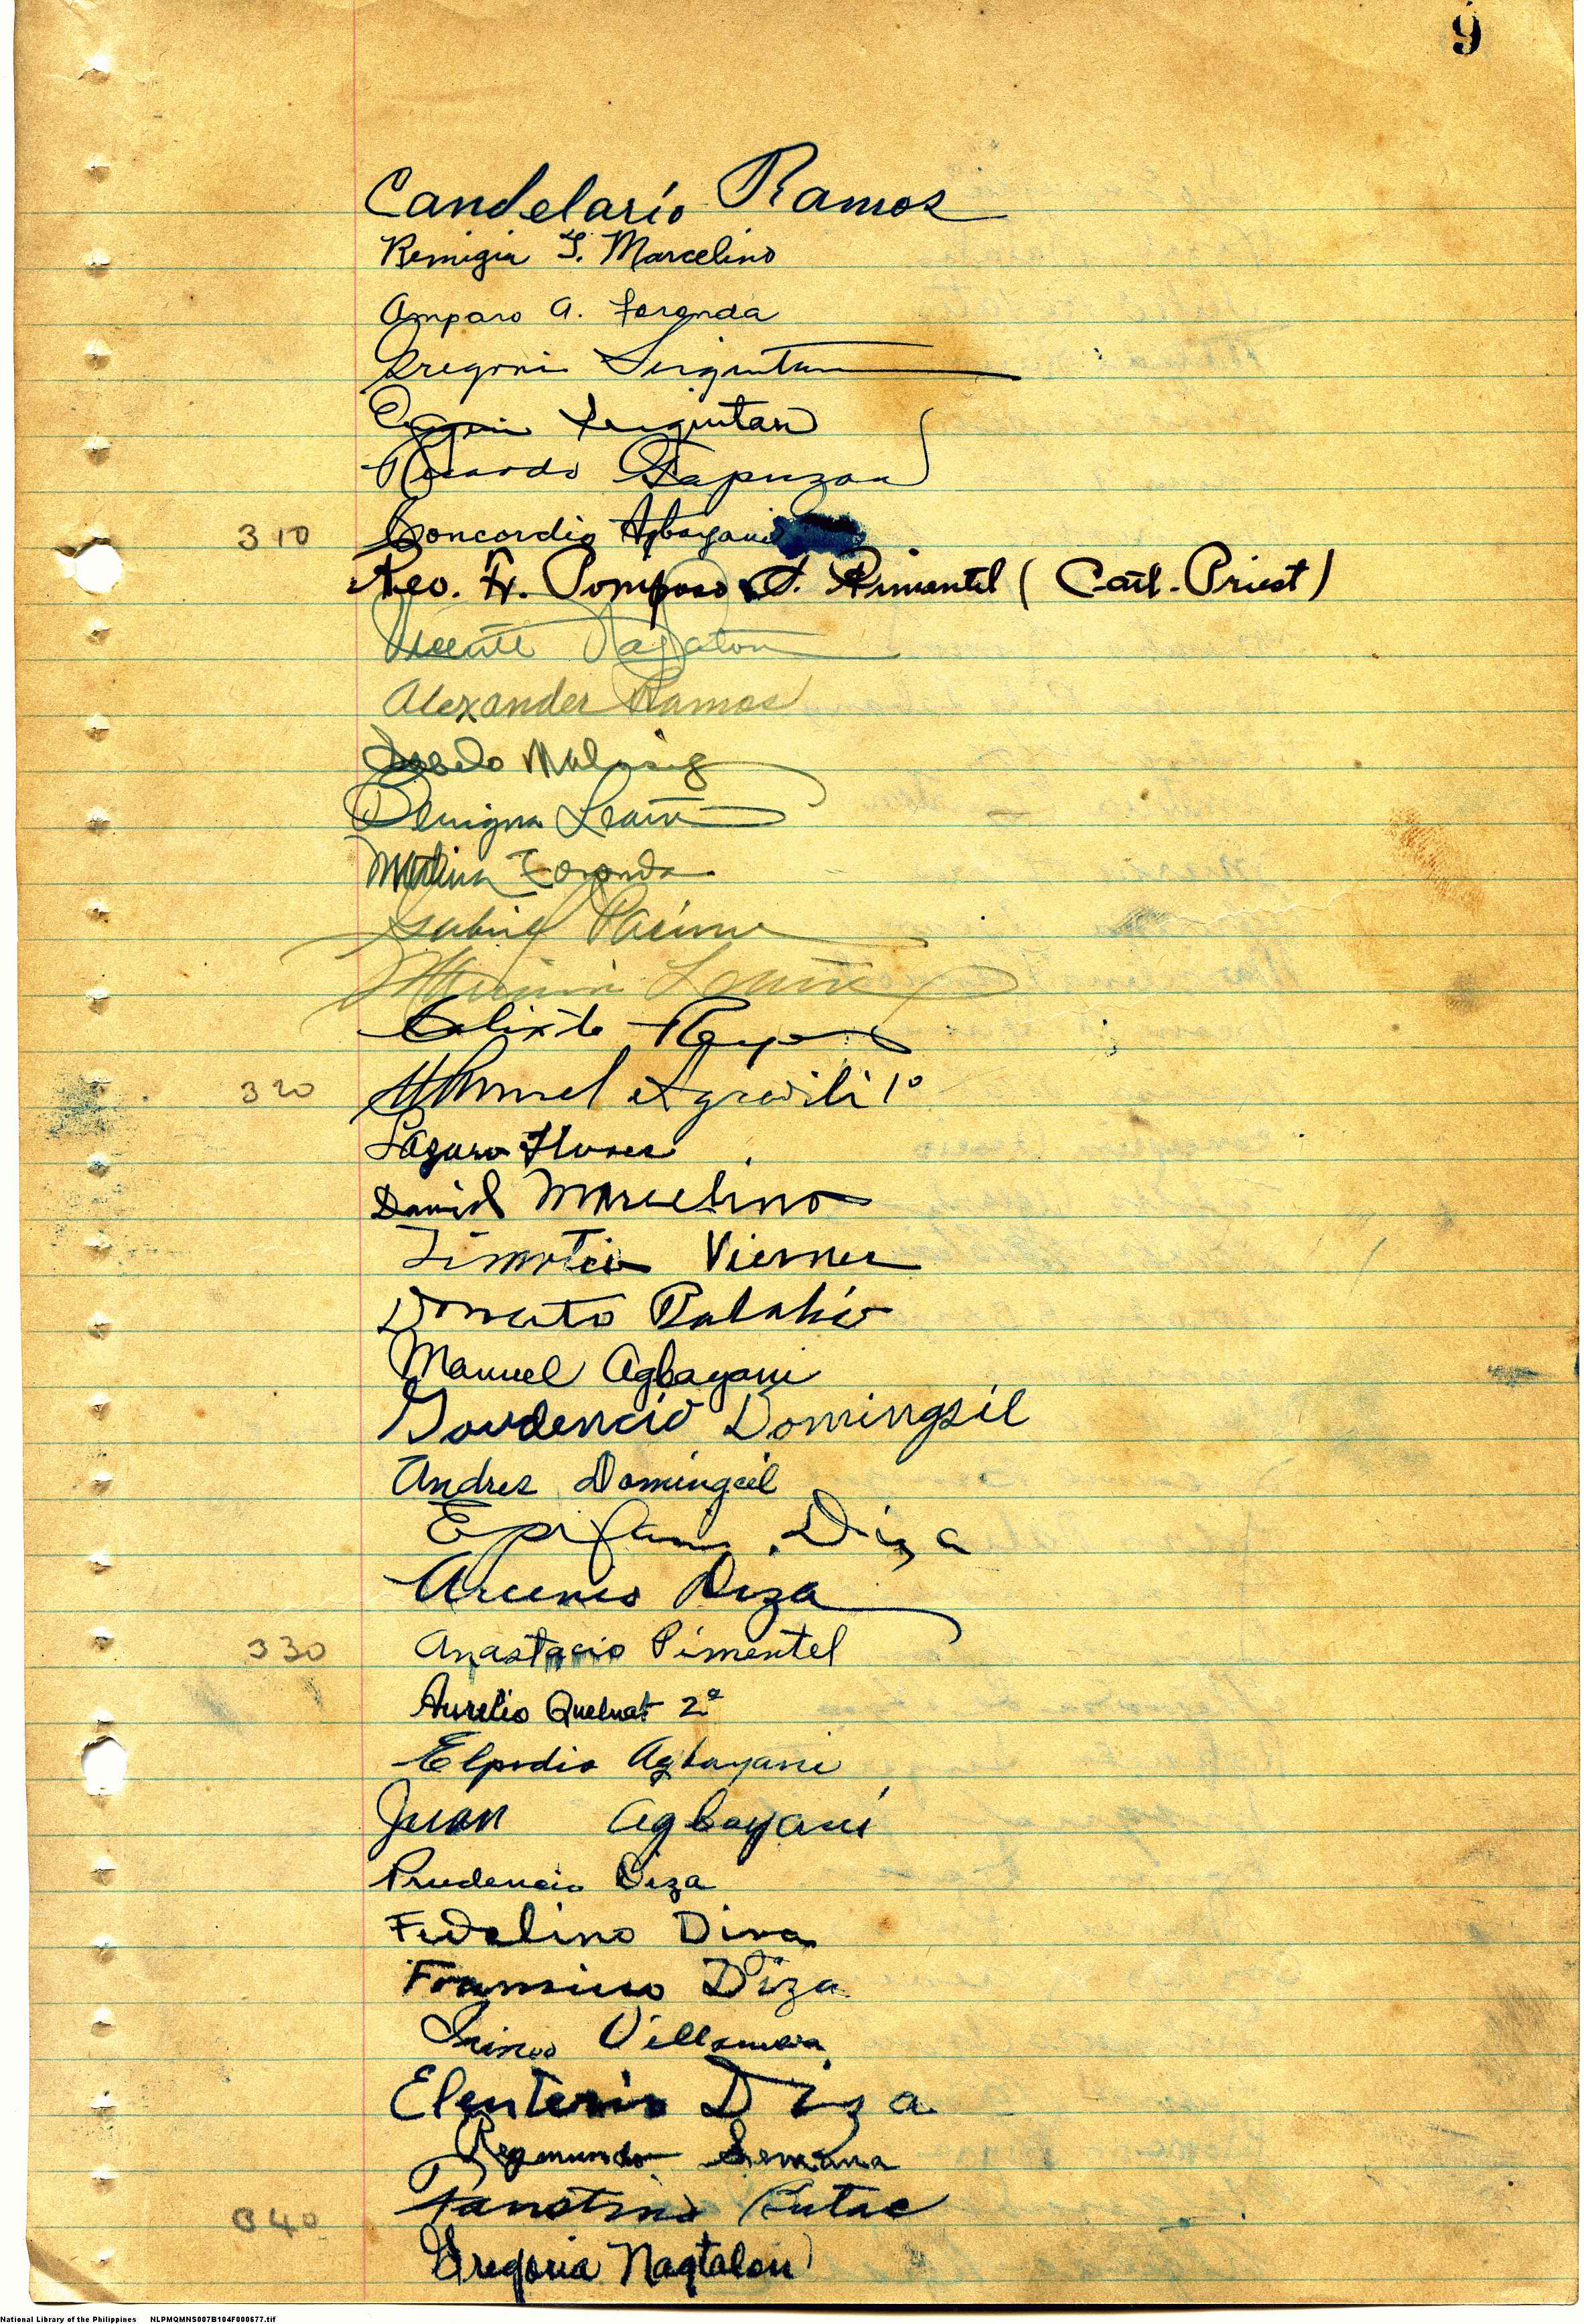 9
Candelario Ramos
Remigia T. Marcelino
Amparo A. Foronda
Gregorio
Ricardo Dapuzan
310 Concordio Agbayani
Rev. Fr. Pomposo Pimentel (Cath. Priest)
Vicente Nagaton
Alexander Ramos
Benigna Leaño
Martina Foronda
Gabriel
Calixto Reyes
320 Manuel Agcaoili 1º
Lazaro Flores
Daniel Marcelino
Timoteo Viernes
Donato
Manuel Agbayani
Gaudencio Domingsil
Andres Domingcil
Epifanio Diza
Arcenio Diza
330 Anastacio Pimentel
Aurelio Quelnat 2º
Elpidio Agbayani
Juan Agbayani
Prudencio Diza
Fidelino Diza
Francisco Diza
Irineo Villanueva
Eleuterio Diza
Raymundo Semana
340 Faustino Butac
Gregoria Nagtalon
National Library of the Philippines NLPMQMNS007B104F000677.tif